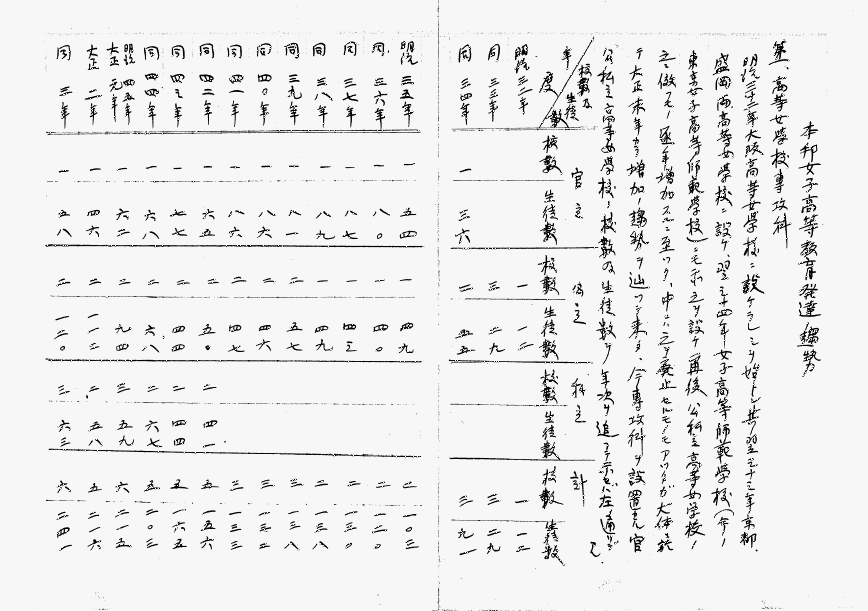 本邦女子高等教育発達趨勢
第一、高等女学校専攻科
明治三十二年大阪高等女学校ニ設ケラレシヲ始トシ其翌三十三年京都、
盛岡両高等女学校ニ設ケ、翌三十四年女子高等師範学校(今ノ
東京女子高等師範学校)ニモ亦之ヲ設ケ、再後公私立高等女学校ノ
之ニ倣ヒ逐年増加スルニ至ツタ、中ニハ之ヲ廃止セルモノモアツタガ大体ニ於
テ大正末年マデ増加ノ趨勢ヲ辿ツテ来タ、今専攻科ヲ設置セル官
公私立高等女学校ノ校数及生徒数ヲ年次ヲ追ツテ示セバ左ノ通リデ
年度 校数及生徒数 官立 公立 私立 計
校数 生徒数 校数 生徒数 校数 生徒数 校数 生徒数
明治三二年 一 一二 一 一二
同 三三年 三 二九 三 二九
同 三四年 一 三六 二 五五 三 九一
明治三五年 一 五四 二 四九 二 一〇三
同 三六年 一 八〇 二 四〇 二 一二〇
同 三七年 一 八七 二 四三 三 一三〇
同 三八年 一 八九 二 四九 三 一三八
同 三九年 一 八一 二 五七 三 一三八
同 四〇年 一 八六 二 四六 三 一三二
同 四一年 一 八六 二 四七 三 一三三
同 四二年 一 六五 二 五〇 二 四一 五 一五六
同 四三年 一 七七 二 四四 二 四四 五 一六五
同 四四年 一 六八 二 六八 二 六七 五 二〇三
明治四五年 大正元年 一 六二 二 九四 三 五九 六 二一五
大正 二年 一 四六 二 一一二 二 五八 五 二一六
同 三年 一 五八 二 一二〇 三 六三 六 二四一